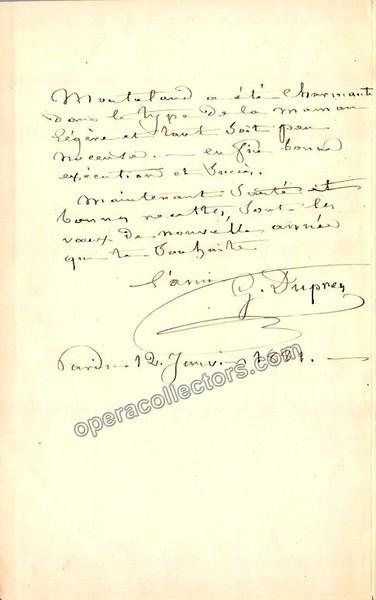 Montaland a été charmante
dans le type de la maman
légère et tant soit peu
noceuse. — enfin bonne
exécution et succès.
Maintenant santé et
bonnes recettes, sont les
vœux de nouvelle année
que te souhaite
l'ami
G. Duprez
Paris 12 Janvier
operacollectors.com